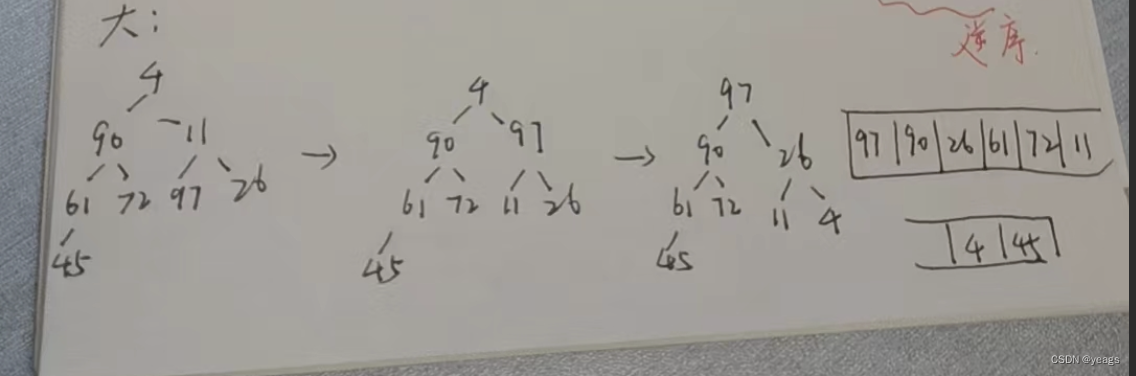 大:
逆序.
4
90 11
61 72 97 26
45
→
4
90 97
61 72 11 26
45
→
97
90 26
61 72 11 4
45
97 | 90 | 26 | 61 | 72 | 11
4 | 45
CSDN @yeags